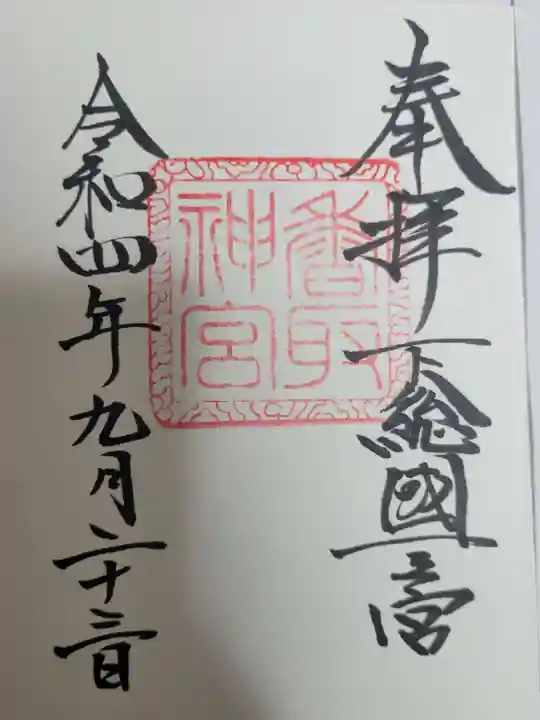 奉拝 下総國一之宮
香取
神宮
令和四年九月二十三日